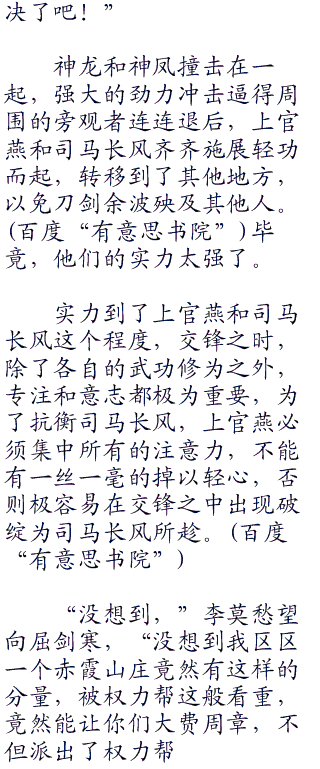 决了吧！”
神龙和神凤撞击在一
起，强大的劲力冲击逼得周
围的旁观者连连退后，上官
燕和司马长风齐齐施展轻功
而起，转移到了其他地方，
以免刀剑余波殃及其他人。
(百度“有意思书院”)毕
竟，他们的实力太强了。
实力到了上官燕和司马
长风这个程度，交锋之时，
除了各自的武功修为之外，
专注和意志都极为重要，为
了抗衡司马长风，上官燕必
须集中所有的注意力，不能
有一丝一毫的掉以轻心，否
则极容易在交锋之中出现破
绽为司马长风所趁。(百度
“有意思书院”)
“没想到，”李莫愁望
向屈剑寒，“没想到我区区
一个赤霞山庄竟然有这样的
分量，被权力帮这般看重，
竟然能让你们大费周章，不
但派出了权力帮